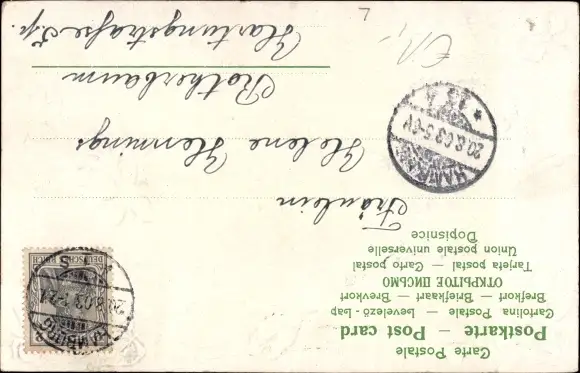 Carte Postale
Postkarte — Post card
Cartolina Postale — Levelező-Lap
Brefkort — Briefkaart — Brevkort
ОТКРЫТОЕ ПИСЬМО
Tarjeta postal — Carto postal
Union postale universelle
Dopisnice
Fräulein
Helene Hemmings
Rotherbaum
Hartungstraße
HAMBURG
20.8.03
DEUTSCHES REICH
2
HAMBURG
20.8.03.5-6V
* 13 *
7